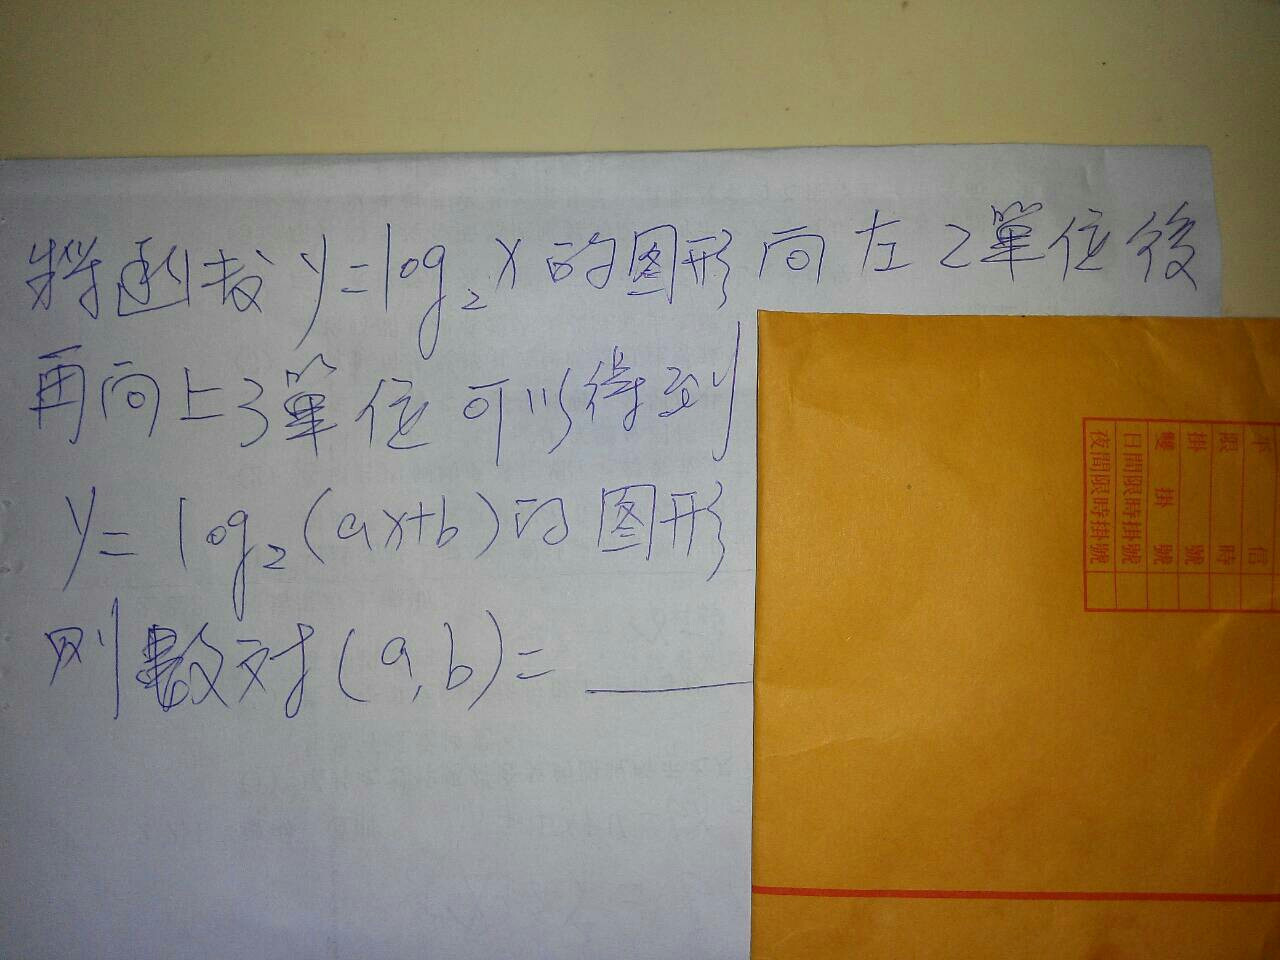 將函数 y=log₂x 的图形向左2單位後
再向上3單位可以得到
y=log₂(ax+b)的图形
则數对(a,b)=
平信
限時
掛號
雙掛號
日間限時掛號
夜間限時掛號